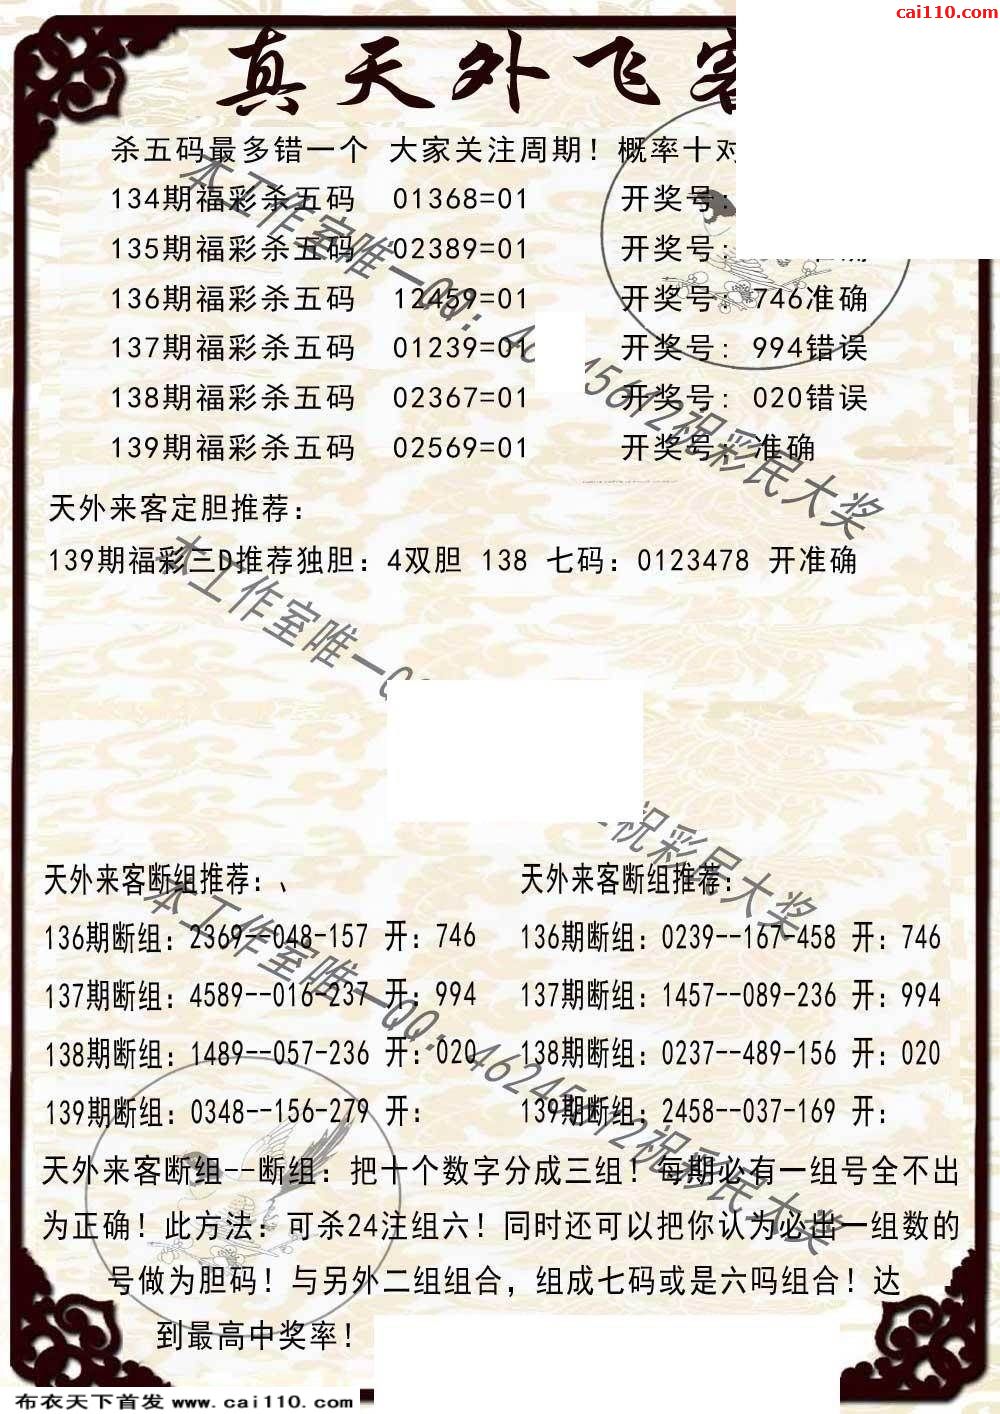 cai110.com
真天外飞客
杀五码最多错一个 大家关注周期！概率十对
134期福彩杀五码 01368=01 开奖号:
135期福彩杀五码 02389=01 开奖号:
136期福彩杀五码 12459=01 开奖号: 746准确
137期福彩杀五码 01239=01 开奖号: 994错误
138期福彩杀五码 02367=01 开奖号: 020错误
139期福彩杀五码 02569=01 开奖号: 准确
天外来客定胆推荐:
139期福彩三D推荐独胆: 4双胆 138 七码: 0123478 开准确
天外来客断组推荐:、 天外来客断组推荐:
136期断组: 2369--048-157 开: 746 136期断组: 0239--167-458 开: 746
137期断组: 4589--016-237 开: 994 137期断组: 1457--089-236 开: 994
138期断组: 1489--057-236 开: 020 138期断组: 0237--489-156 开: 020
139期断组: 0348--156-279 开: 139期断组: 2458--037-169 开:
天外来客断组--断组: 把十个数字分成三组！每期必有一组号全不出
为正确！此方法: 可杀24注组六！同时还可以把你认为必出一组数的
号做为胆码！与另外二组组合，组成七码或是六吗组合！达
到最高中奖率！
本工作室唯一QQ: 46245612祝彩民大奖
布衣天下首发 www.cai110.com